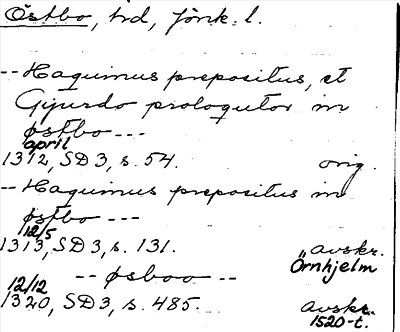 Östbo, trd, Jönk. l.
-- Haquinus prepositus, et
Gyurdo proloqutor in
østbo ---
april
1312, SD 3, s. 54. orig.
-- Haquinus prepositus in
østbo ---
12/5
1313, SD 3, s. 131. „avskr.
Örnhjelm
-- øsboo --
12/12
1320, SD 3, s. 485. avskr.
1520-t.